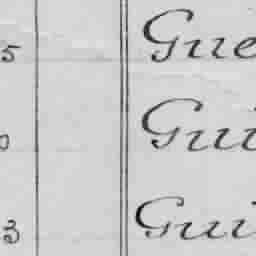 5 Gue
0 Gui
3 Gui